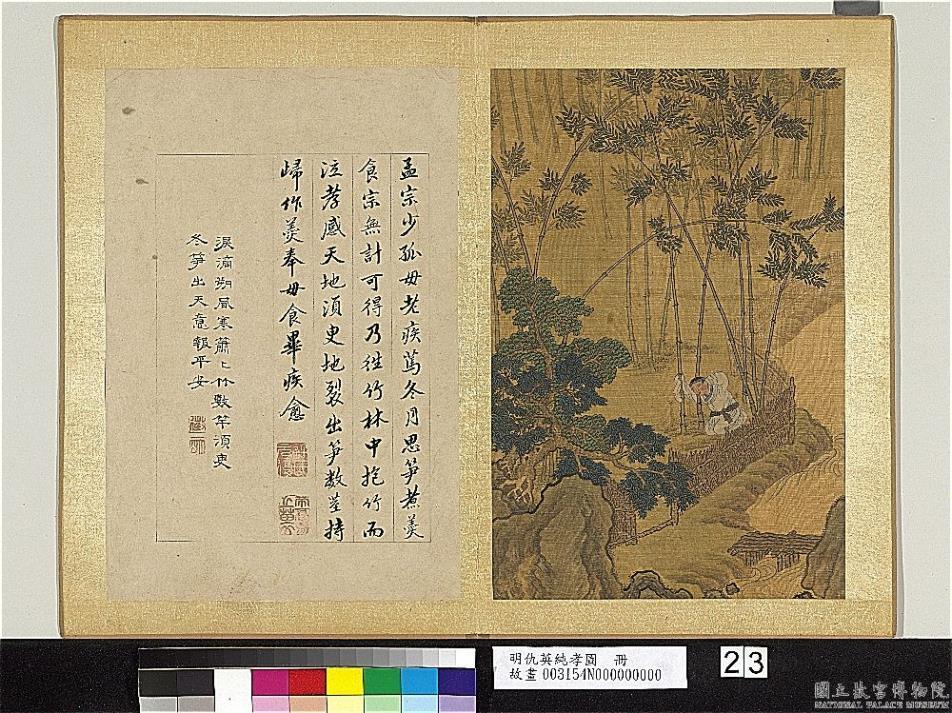 孟宗少孤母老疾篤冬月思笋煮羹
食宗無計可得乃徃竹林中抱竹而
泣孝感天地湏臾地裂出笋数莖持
歸作羹奉母食畢疾愈
淚滴朔風寒蕭〻竹數竿湏臾
冬笋出天意報平安
明仇英純孝圖　冊
故畫 003154N000000000
23
國立故宮博物院
NATIONAL PALACE MUSEUM